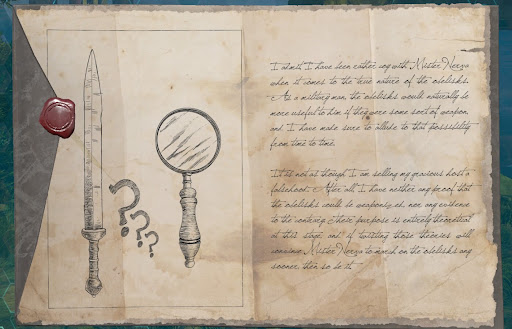 ???
I admit, I have been rather coy with Mister Nerva
when it comes to the true nature of the obelisks.
As a military man, the obelisks would naturally be
more useful to him if they were some sort of weapon,
and I have made sure to allude to that possibility
from time to time.
It is not as though I am selling my gracious host a
falsehood. After all, I have neither any proof that
the obelisks could be weaponized, nor any evidence
to the contrary. Their purpose is entirely theoretical
at this stage and if twisting those theories will
convince Mister Nerva to march on the obelisks any
sooner, then so be it.